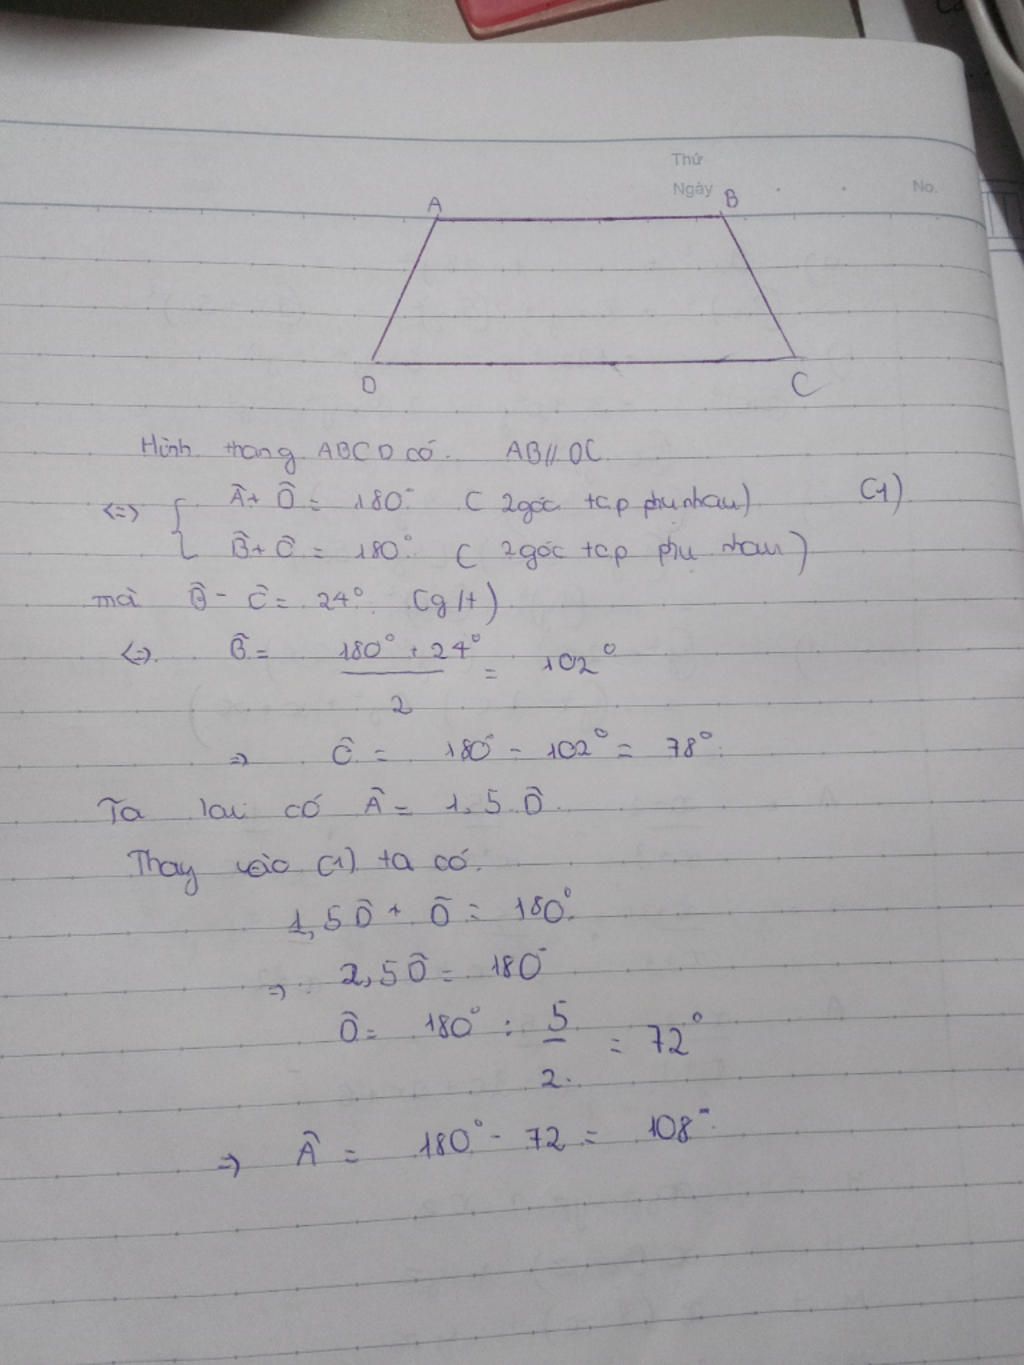 Thứ
Ngày . . No.
A B
D C
Hình thang ABCD có AB // DC
<=> { Â + D̂ = 180° ( 2góc tcp phụ nhau) (1)
B̂ + Ĉ = 180° ( 2góc tcp phụ nhau)
mà B̂ - Ĉ = 24° (g/t)
<=> B̂ = (180° + 24°)/2 = 102°
=> Ĉ = 180° - 102° = 78°.
Ta lại có Â = 1,5 D̂.
Thay vào (1) ta có.
1,5D̂ + D̂ = 180°.
=> 2,5D̂ = 180°
D̂ = 180° : 5/2 = 72°
=> Â = 180° - 72 = 108°.